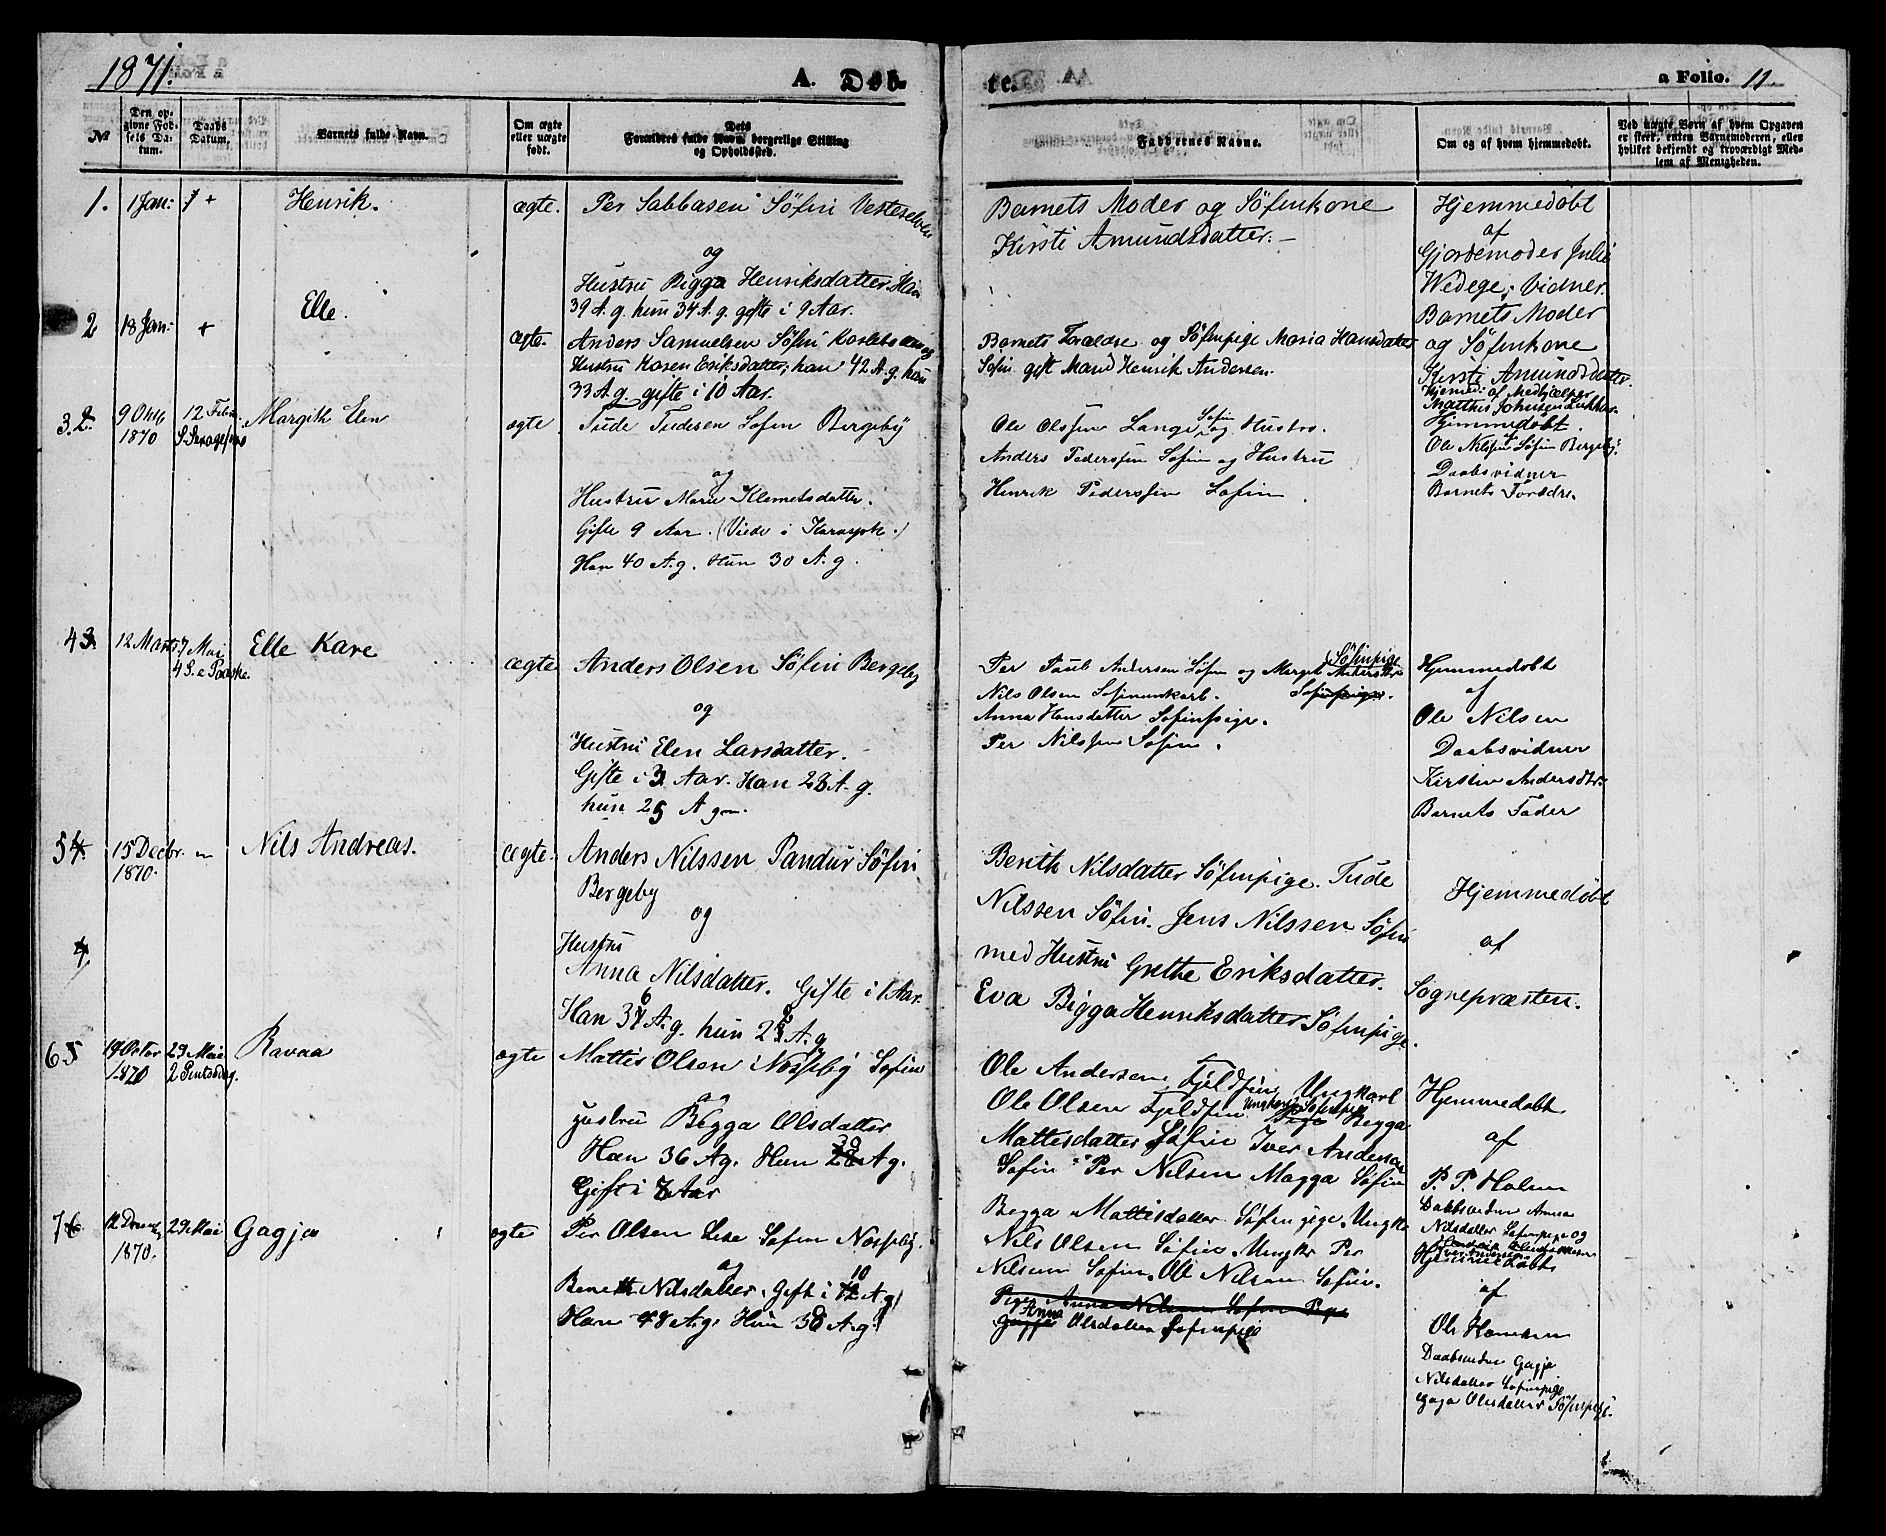 1871.
A. Døb-
te.
a Folio. 11.
№
Den opgivne Fødsels Datum.
Daabs Datum,
Barnets fulde Navn.
Om ægte eller uægte født.
Dets Forældres fulde Navn, borgerlige Stilling og Opholdssted.
Faddernes Navne.
Om og af hvem hjemmedøbt.
Ved uægte Børn af hvem Opgaven er skeet, enten Barnemoderen, eller hvilket bekjendt og troværdigt Medlem af Menigheden.
1.
1 Jan:
+
Henrik.
ægte.
Per Sabbasen Söfin Vesterelven
og
Hustru Bigga Henriksdatter. Han
39 A. g. hun 34 A. g. gifte i 9 Aar.
Barnets Moder og Söfinkone
Kirsti Amundsdatter. –
Hjemmedöbt
af
Gjordemoder Julie
Wedege; Vidner
Barnets Moder
og Söfinkone
Kirsti Amundsdatter.
2
18 Jan:
+
Elle.
ægte.
Anders Samuelsen Söfin
Hustru Karen Eriksdatter; han 42 A. g. hun
33 A. g. gifte i 10 Aar.
Barnets Forældre og Söfinpige Maria Hansdatter
Söfin gift Mand Henrik Andersen.
Hjemmed. af Medhjælper
Matthis Johnsen
3. 2.
9 Octb
1870
12 Febr.
S. Sexagesima
Margith Elen
ægte
Tude Tudesen Söfin Bergeby
og
Hustru Marie Klemetsdatter.
Gifte 9 Aar. (Viede i Karasjok.)
Han 40 A. g. Hun 30 A. g.
Ole Olssen Lange Söfin og Hustru.
Anders Pedersen Söfin og Hustru
Henrik Pedersen Söfin.
Hjemmedöbt
af
Ole Nilssen Söfin Bergeby.
Daabsvidner
Barnets Forældre.
4 3.
12 Marts
7 Mai
4 S. e Paaske.
Elle Kare
ægte
Anders Olsen Söfin Bergeby
og
Hustru Elen Larsdatter.
Gifte i 3 Aar. Han 28 A. g.
hun 25 A g.
Per Paul Andersen Söfin og Marget Andersdtr Söfinpige
Nils Olsen Söfinunkarl. Söfinpige.
Anna Hansdatter Söfinpige.
Per Nilssen Söfin.
Hjemmedöbt
af
Ole Nilsen
Daabsvidner
Kirsten Andersdtr.
Barnets Fader
5 4.
15 Decbr.
1870.
"
Nils Andreas.
ægte.
Anders Nilssen Pandur Söfin
Bergeby
og
Hustru
Anna Nilsdatter. Gifte i 1 Aar.
Berith Nilsdatter Söfinpige. Tude
Nilssen Söfin. Jens Nilssen Söfin
med Hustru Grethe Eriksdatter.
Eva Bigga Henriksdatter Söfinpige.
Hjemmedöbt
af
Sognepræsten.
6 5
19 Octbr
1870
29 Mai
2 Pintsedag.
Ravna
ægte
Mattis Olsen i Nesseby Söfin
og
Hustru Bigga Olsdatter
Han 36 A g. Hun 30 A g.
Gift i 8 Aar
Ole Andersen Fjeldfin Ungkarl
Ole Olsen Fjeldfin Ungkarl Söfinpige Begga
Mattisdatter Söfin Iver Andersen
Söfin Per Nilsen Magga Söfin
Hjemmedöbt
af
P. P. Holsen
Daabsvidner Anna
Nilsdatter Söfinpige og
7 6
1870.
29 Mai
Gagja
ægte
Per Olsen Söfin Nesseby.
og
Berreth Nilsdatter. Gift i 10 A g
Han 48 A. g. Hun 38 A. g.
Begga Mattisdatter Söfinpige. Ungkr
Nils Olsen Söfin Ungkr Per
Nilsen Söfin. Ole Nilsen Söfin.
Anna Olsdatter Söfinpige
Hjemmedöbt
af
Ole Hansen
Daabsvidner Gagja
Nilsdatter Söfinpige
Gaja Olsdatter Söfinpige.